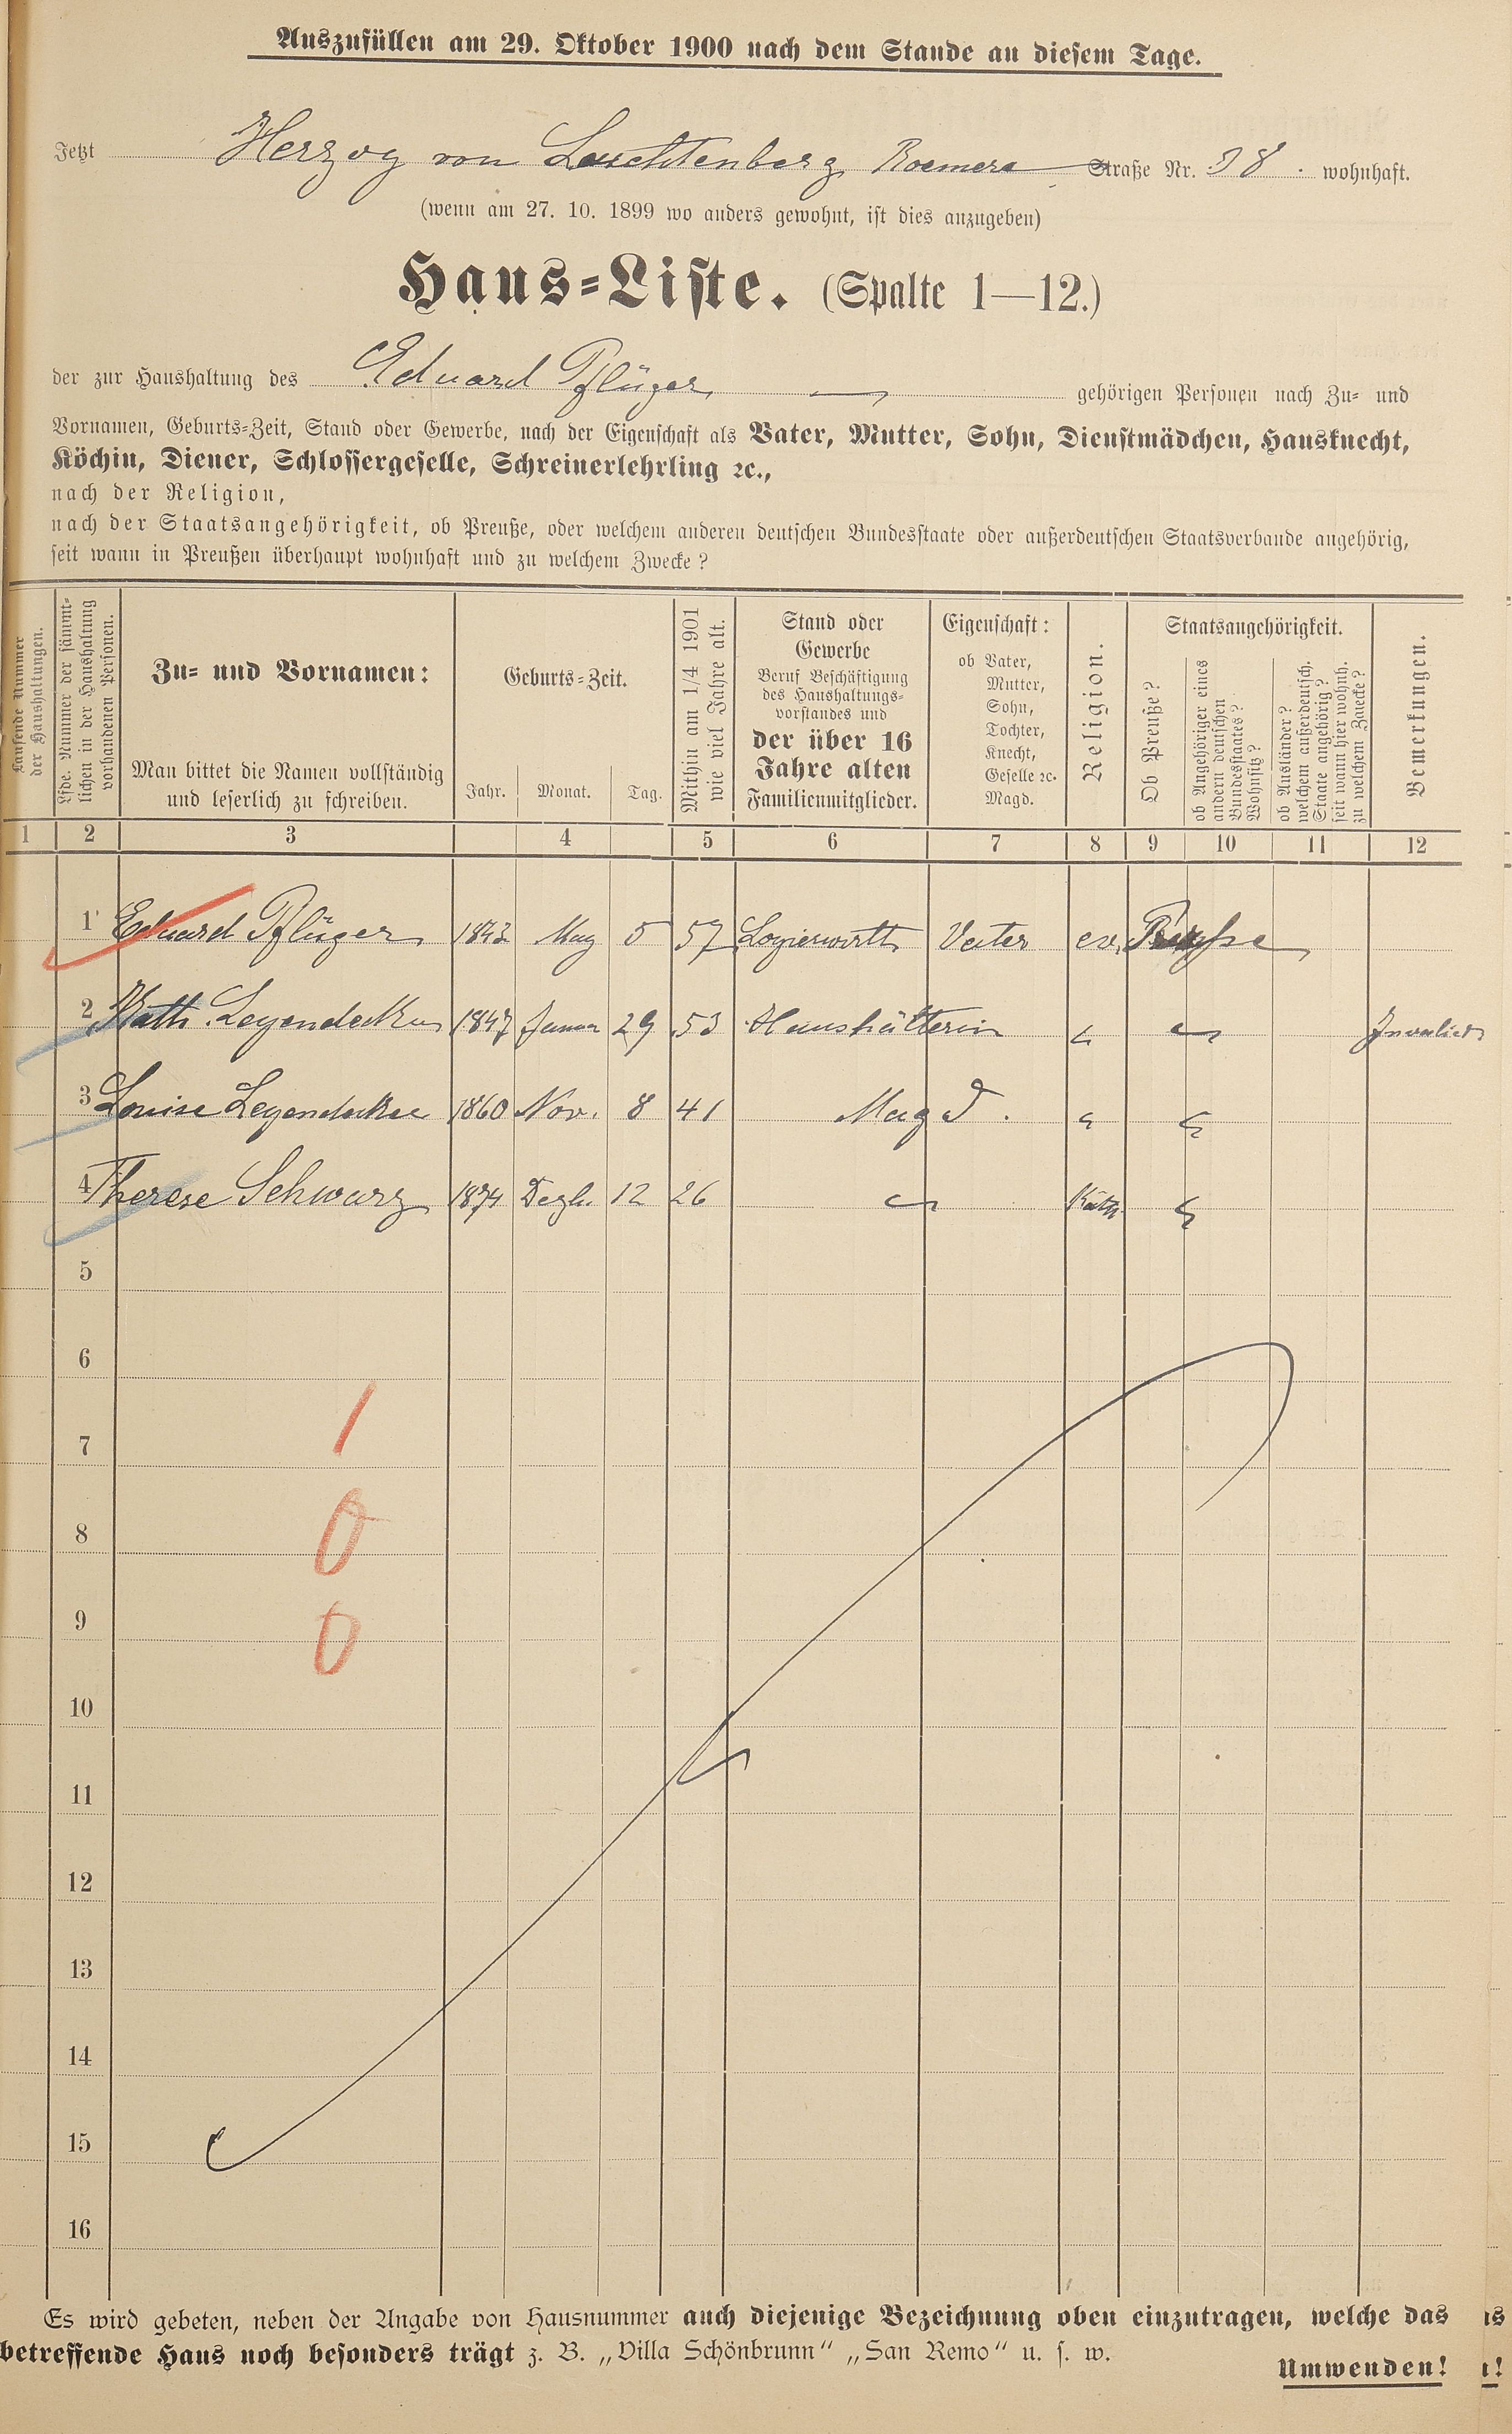 Auszufüllen am 29. Oktober 1900 nach dem Stande an diesem Tage.
Jetzt Herzog von Leuchtenberg Roemer Straße Nr. 38. wohnhaft.
(wenn am 27. 10. 1899 wo anders gewohnt, ist dies anzugeben)
Haus=Liste. (Spalte 1—12.)
der zur Haushaltung des Eduard Pflüger gehörigen Personen nach Zu= und
Vornamen, Geburts=Zeit, Stand oder Gewerbe, nach der Eigenschaft als Vater, Mutter, Sohn, Dienstmädchen, Hausknecht,
Köchin, Diener, Schlossergeselle, Schreinerlehrling ꝛc.,
nach der Religion,
nach der Staatsangehörigkeit, ob Preuße, oder welchem anderen deutschen Bundesstaate oder außerdeutschen Staatsverbande angehörig,
seit wann in Preußen überhaupt wohnhaft und zu welchem Zwecke?
Laufende Nummer
der Haushaltungen.
Lfde. Nummer der sämmt=
lichen in der Haushaltung
vorhandenen Personen.
Zu= und Vornamen:
Man bittet die Namen vollständig
und leserlich zu schreiben.
Geburts=Zeit.
Jahr. Monat. Tag.
Mithin am 1/4 1901
wie viel Jahre alt.
Stand oder
Gewerbe
Beruf Beschäftigung
des Haushaltungs=
vorstandes und
der über 16
Jahre alten
Familienmitglieder.
Eigenschaft:
ob Vater,
Mutter,
Sohn,
Tochter,
Knecht,
Geselle ꝛc.
Magd.
Religion.
Staatsangehörigkeit.
Ob Preuße?
ob Angehöriger eines
andern deutschen
Bundesstaates?
Wohnsitz?
ob Ausländer?
welchem außerdeutsch.
Staate angehörig?
seit wann hier wohnh.
zu welchem Zwecke?
Bemerkungen.
1 2 3 4 5 6 7 8 9 10 11 12
1 Eduard Pflüger 1843 May 5 57 Logierwirth Vater ev. Preusse
2 Kath. Leyendecker 1847 Januar 29 53 Haushälterin " " Invalid
3 Louise Leyendecker 1860 Nov. 8 41 Magd. " "
4 Therese Schwarz 1874 Dezb. 12 26 " Kath. "
5
6
7
8
9
10
11
12
13
14
15
16
1
0
0
Es wird gebeten, neben der Angabe von Hausnummer auch diejenige Bezeichnung oben einzutragen, welche das
betreffende Haus noch besonders trägt z. B. „Villa Schönbrunn“ „San Remo“ u. s. w.
Umwenden!